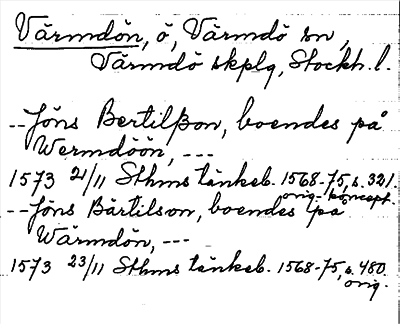 Värmdön, ö, Värmdö sn,
Värmdö skplg, Stockh. l.
-- Jöns Bertilßon, boendes på
Wermdöön, ---
1573 21/11 Sthms tänkeb. 1568-75, s. 321.
orig. koncept.
-- Jöns Bärtilson, boendes på
Wärmdön, ---
1573 23/11 Sthms tänkeb. 1568-75, s. 480.
orig.